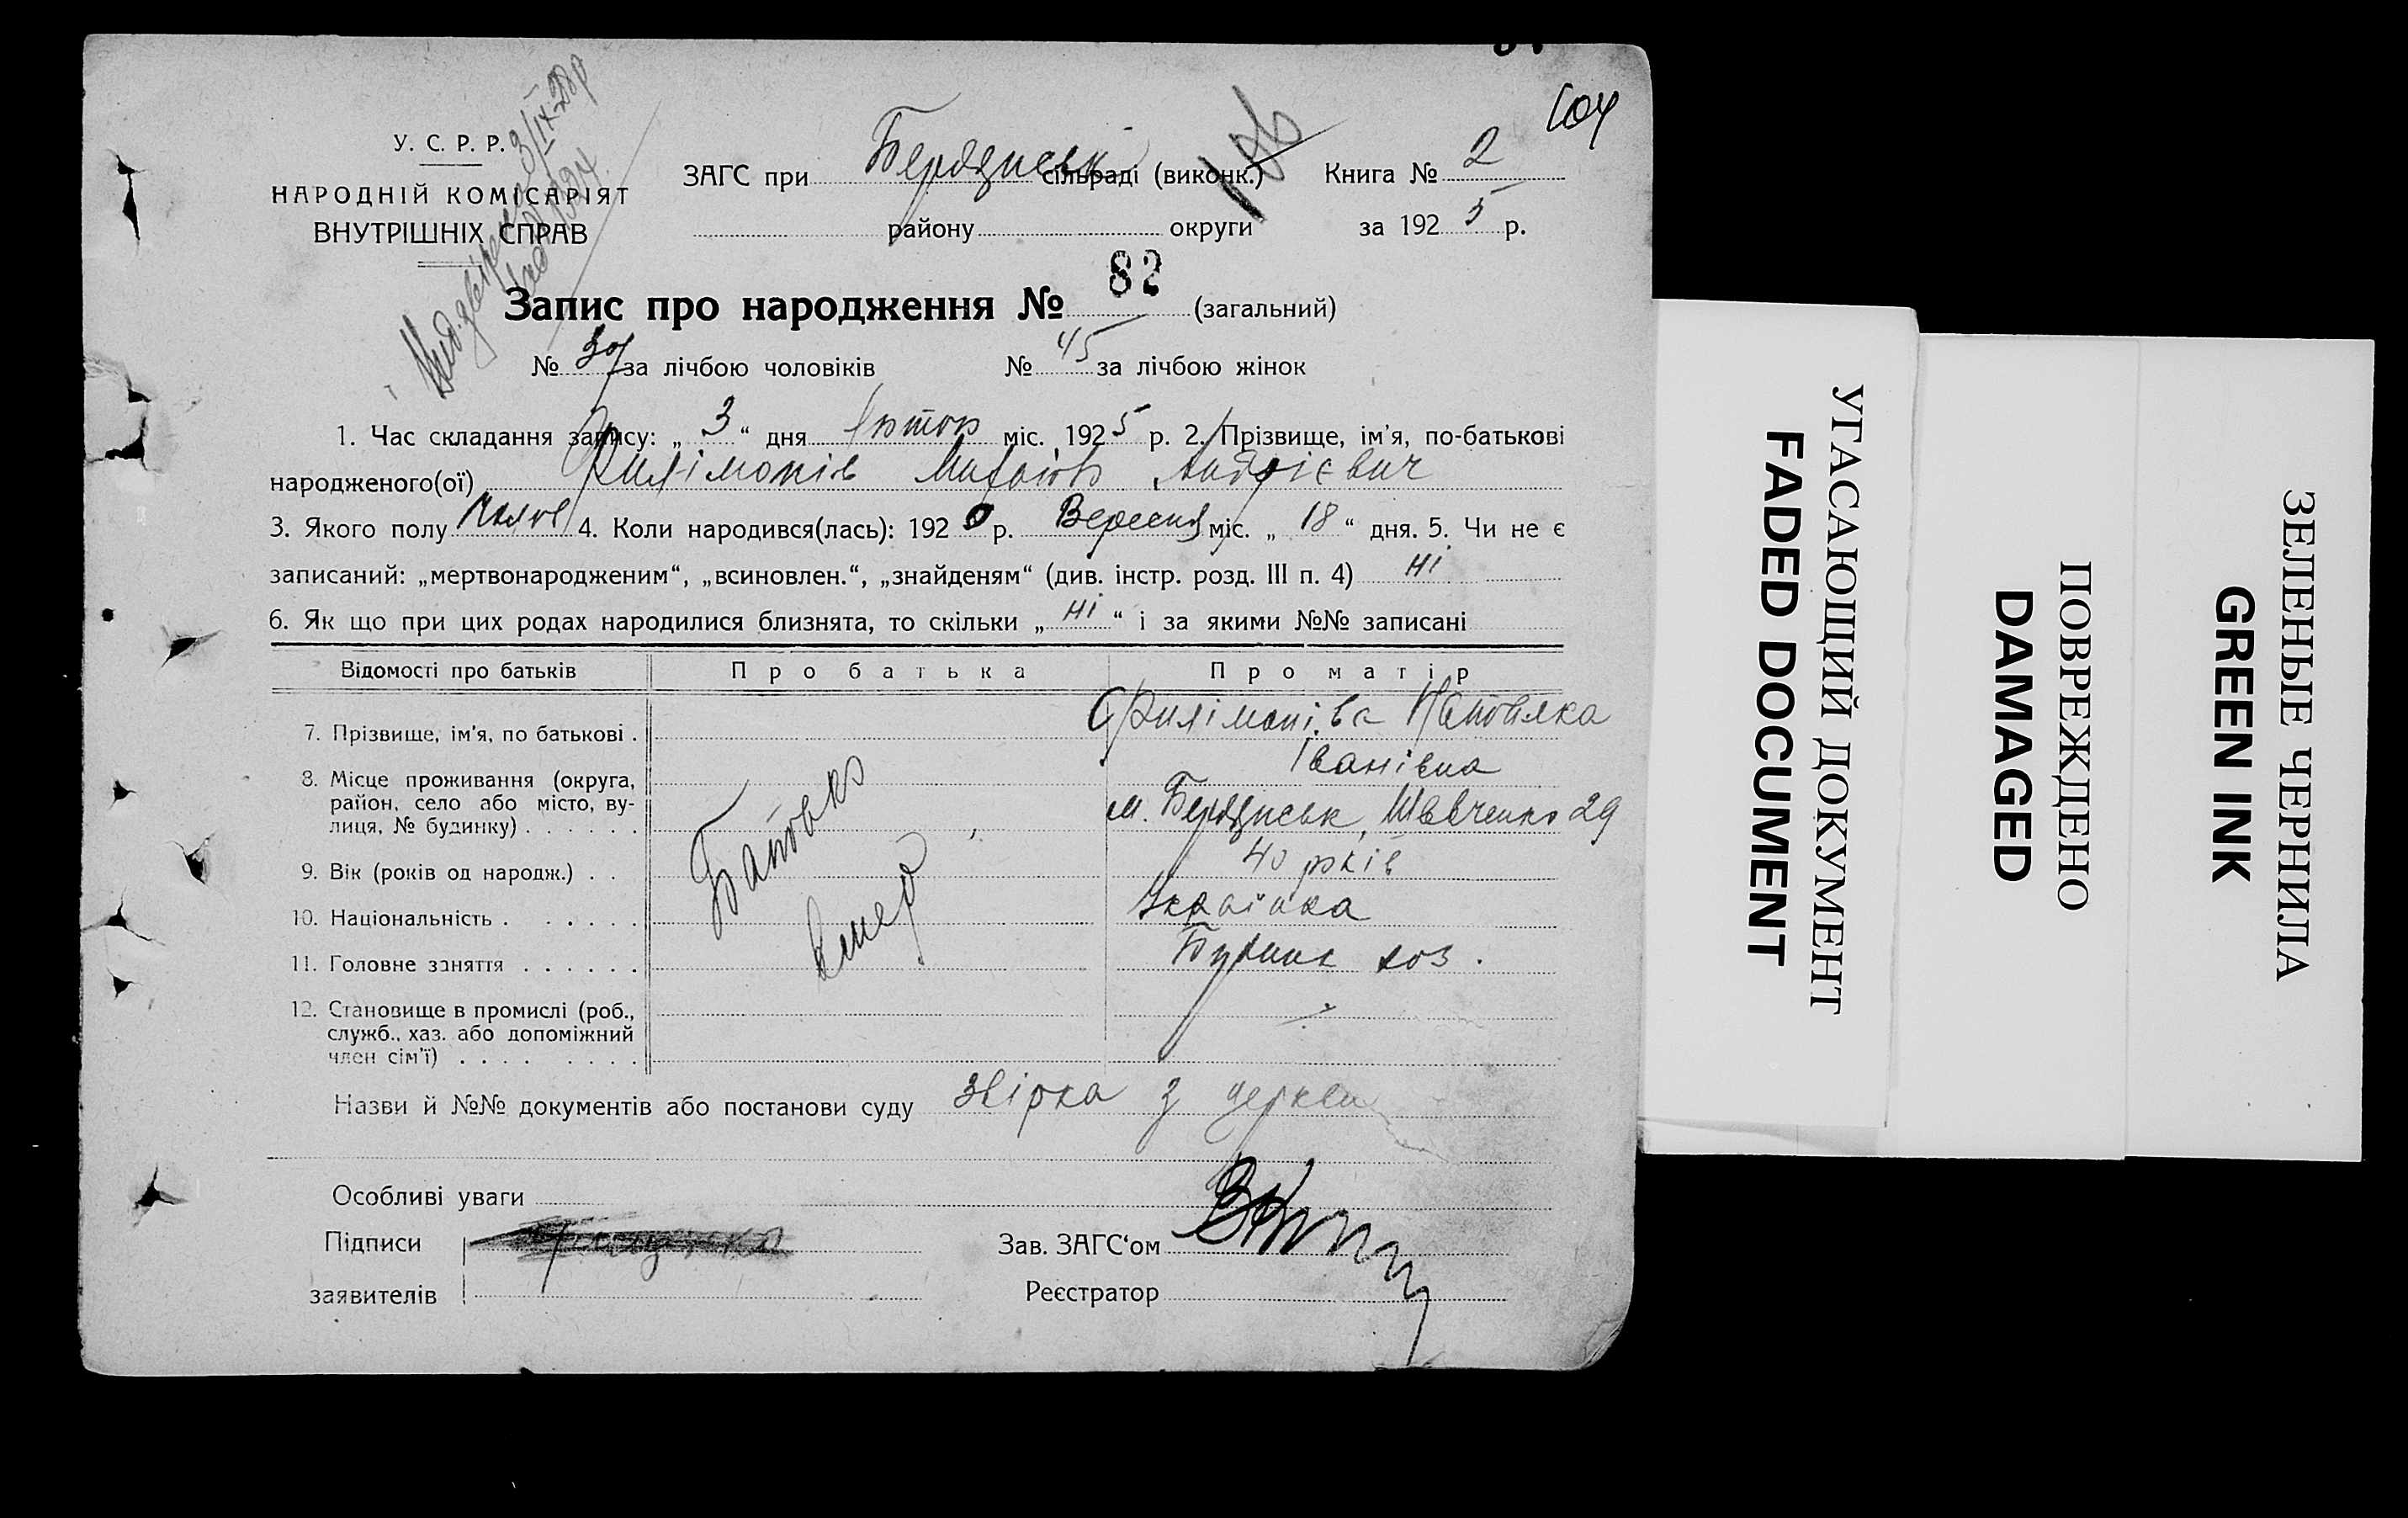 104
У. С. Р. Р.
НАРОДНІЙ КОМІСАРІЯТ
ВНУТРІШНІХ СПРАВ
ЗАГС при Бердянськ сільраді (виконк.) Книга № 2
району округи за 1925 р.
Запис про народження № 82 (загальний)
№ за лічбою чоловіків № 45 за лічбою жінок
1. Час складання запису: „ 3 “ дня міс. 1925 р. 2. Прізвище, ім’я, по-батькові
народженого(ої) Филімонів Андрієвич
3. Якого полу 4. Коли народився(лась): 1920 р. Вересня міс. „ 18 “ дня. 5. Чи не є
записаний: „мертвонародженим“, „всиновлен.“, „знайденям“ (див. інстр. розд. III п. 4) ні
6. Як що при цих родах народилися близнята, то скільки „ ні “ і за якими №№ записані
Відомості про батьків Про батька Про матір
7. Прізвище, ім’я, по батькові . Филімонівa
Іванівна
8. Місце проживання (округа,
район, село або місто, ву-
лиця, № будинку) . . . . . . м. Бердянськ, Шевченко 29
9. Вік (років од народж.) . . 40 років
10. Національність . . . . . Українка
11. Головне заняття . . . . . . хоз.
Батько
вмер
12. Становище в промислі (роб.,
служб., хаз. або допоміжний
член сім’ї) . . . . . . . .
Назви й №№ документів або постанови суду звірка з церкви
Особливі уваги
Підписи
заявителів
Зав. ЗАГС‘ом
Реєстратор
УГАСАЮЩИЙ ДОКУМЕНТ
FADED DOCUMENT
ПОВРЕЖДЕНО
DAMAGED
ЗЕЛЕНЫЕ ЧЕРНИЛА
GREEN INK